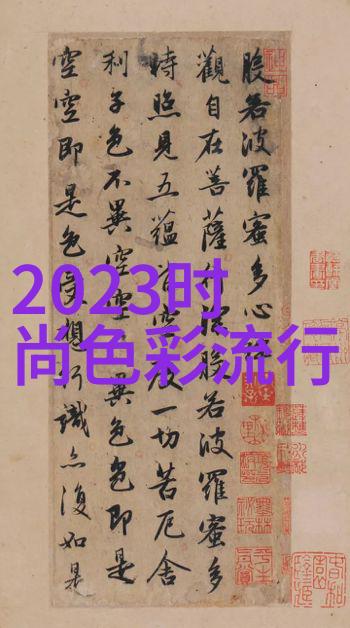 2023时
尚色彩流行
般若波羅蜜多心
觀自在菩薩行深般若波羅蜜多
時照見五蘊皆空度一切苦厄舍
利子色不異空空異色色即是
空空即是色受想行識亦復如是